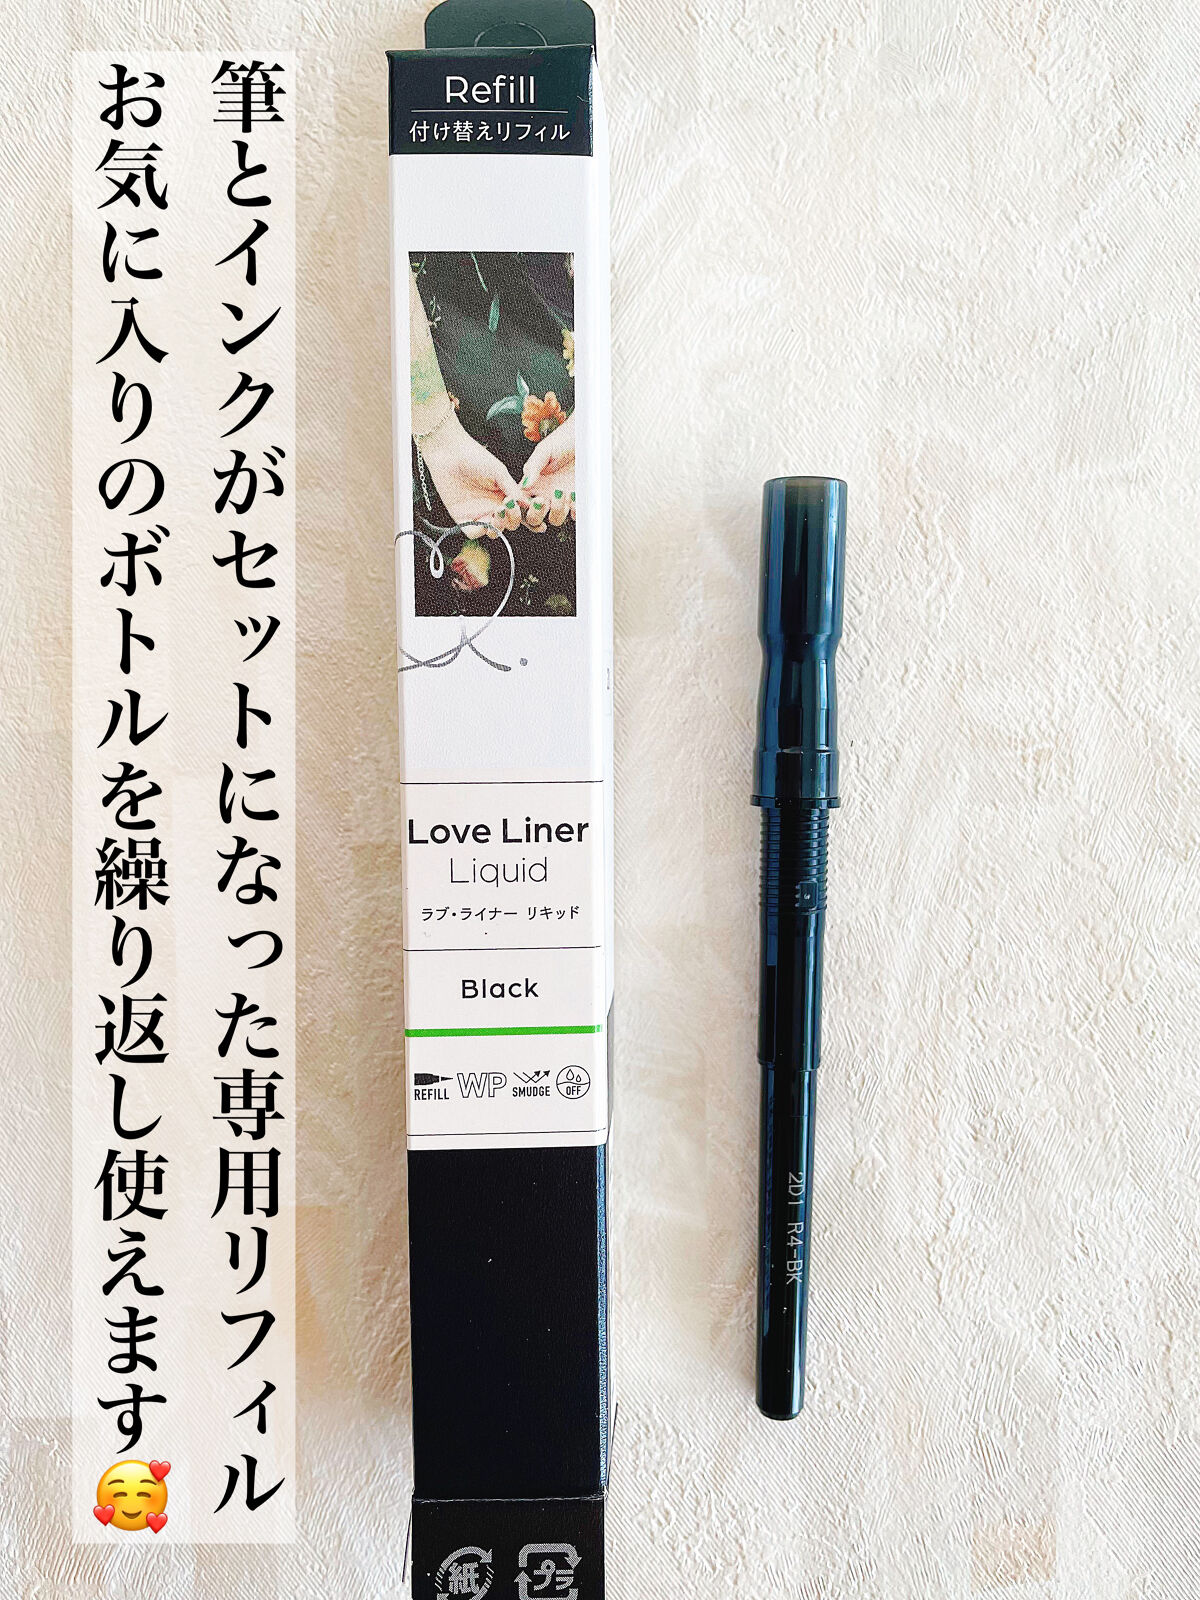 筆とインクがセットになった専用リフィル
お気に入りのボトルを繰り返し使えます🥰
Refill
付け替えリフィル
Love Liner
Liquid
ラブ・ライナー リキッド
Black
REFILL
WP
SMUDGE
OFF
紙
プラ
2D1 R4-BK